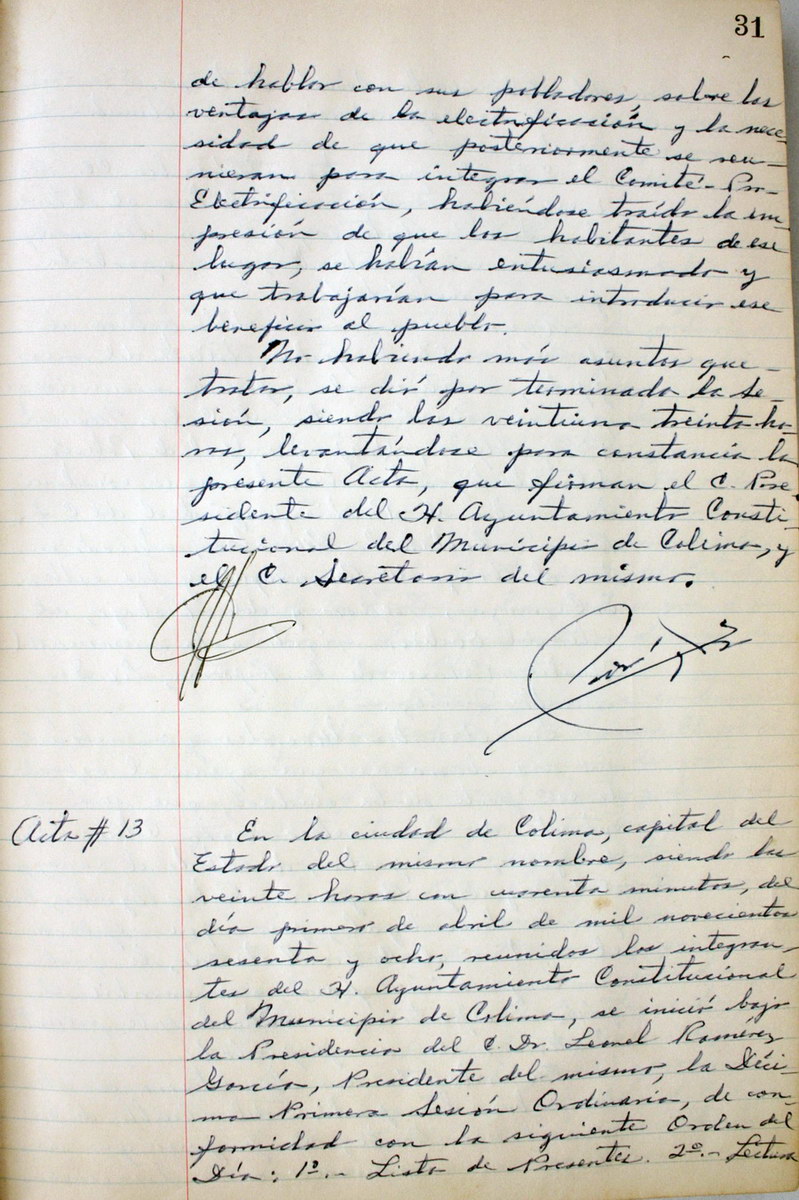 31
de hablar con sus pobladores, sobre las
ventajas de la electrificación y la nece-
sidad de que posteriormente se reu-
nieran para integrar el Comité-Pro-
Electrificación, habiéndose traído la im
presión de que los habitantes de ese
lugar, se habían entusiasmado y
que trabajarían para introducir ese
beneficio al pueblo.
No habiendo más asuntos que-
tratar, se dió por terminada la Se-
sión, siendo las veintiuna treinta ho-
ras, levantándose para constancia la
presente Acta, que firman el C. Pre
sidente del H. Ayuntamiento Consti-
tucional del Municipio de Colima, y
el C. Secretario del mismo.
Acta # 13
En la ciudad de Colima, capital del
Estado del mismo nombre, siendo las
veinte horas con cuarenta minutos, del
día primero de abril de mil novecientos
sesenta y ocho, reunidos los integran-
tes del H. Ayuntamiento Constitucional
del Municipio de Colima, se inició bajo
la Presidencia del C. Dr. Leonel Ramírez
García, Presidente del mismo, la Déci-
ma Primera Sesión Ordinaria, de con-
formidad con la siguiente Orden del
Día: 1º.- Lista de Presentes. 2º.- Lectura